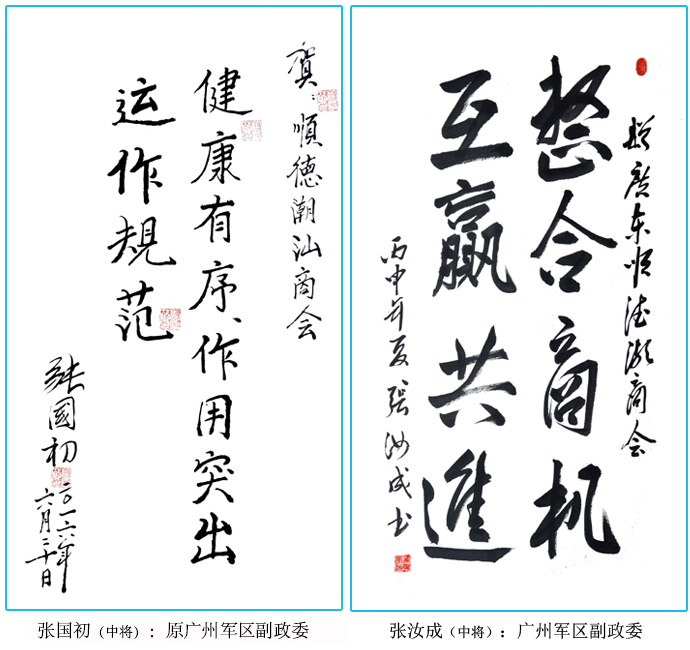 贺:順德潮汕商会
健康有序、作用突出
运作規范
张國初
二〇一六年
六月三十日
赠广东顺德潮商会
整合商机
互赢共進
丙申年夏张汝成书
张国初（中将）：原广州军区副政委
张汝成（中将）：广州军区副政委